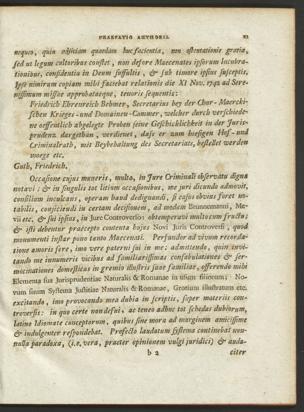 PRAEFATIO AUTHORIS. XI
nequeo, quin obsitiam quaedam huc facientia, non ostentationis gratia,
sed ut legum cultoribus constet, non defore Maecenates ipsorum lucubra-
tionibus, confidentia in Deum suffultis, & sub timore ipsius susceptis.
Ipse nimirum copiam mihi faciebat relationis die XI Nov. 1742 ad Sere-
nissimum missae approbataeque, tenoris sequentis:
Friedrich Ehrenreich Behmer, Secretarius bey der Chur-Maercki-
schen Krieges- und Domainen-Cammer, welcher durch verschiede-
ne oeffentlich abgelegte Proben seine Geschicklichkeit in der Juris-
prudenz dargethan, verdienet, dass er zum hiesigen Hof- und
Criminalrath, mit Beybehaltung des Secretariats, bestellet werden
moege etc.
Guth, Friedrich.
Occasione cujus muneris, multa, in Jure Criminali observatu digna
notavi; & in singulis tot litium occasionibus, me juri dicundo admovit,
consilium inculcans, operam haud dedignandi, si casus obvius foret no-
tabilis, conjiciendi in certam decisionem, ad modum Brunnemanni, Me-
vii etc, & sui ipsius, in Jure Controverso: obtemperavi multo cum fructu;
& isti debentur praecepto contenta hujus Novi Juris Controversi, quod
monumenti instar pono tanto Maecenati. Perfundor ad vivum recorda-
tione amoris fere, imo vere paterni sui in me: admittendo, quin invi-
tando me innumeris vicibus ad familiarissimas confabulationes & ser-
mocinationes domesticas in gremio illustris suae familiae, offerendo mihi
Elementa sua Jurisprudentiae Naturalis & Romanae in usum filiorum; No-
vum suum Systema Justitiae Naturalis & Romanae, Grotium illustratum etc.
excitando, imo provocando mea dubia in scriptis, super materiis con-
troversis: in quo certe non defui, ac teneo adhuc tot schedas dubiorum,
latino Idiomate conceptorum, quibus sine mora ad marginem amicissime
& indulgenter respondebat. Profecto laudatum systema continebat non-
nulla paradoxa, (i.e, vera, praeter opinionem vulgi juridici) & auda-
b 2 citer